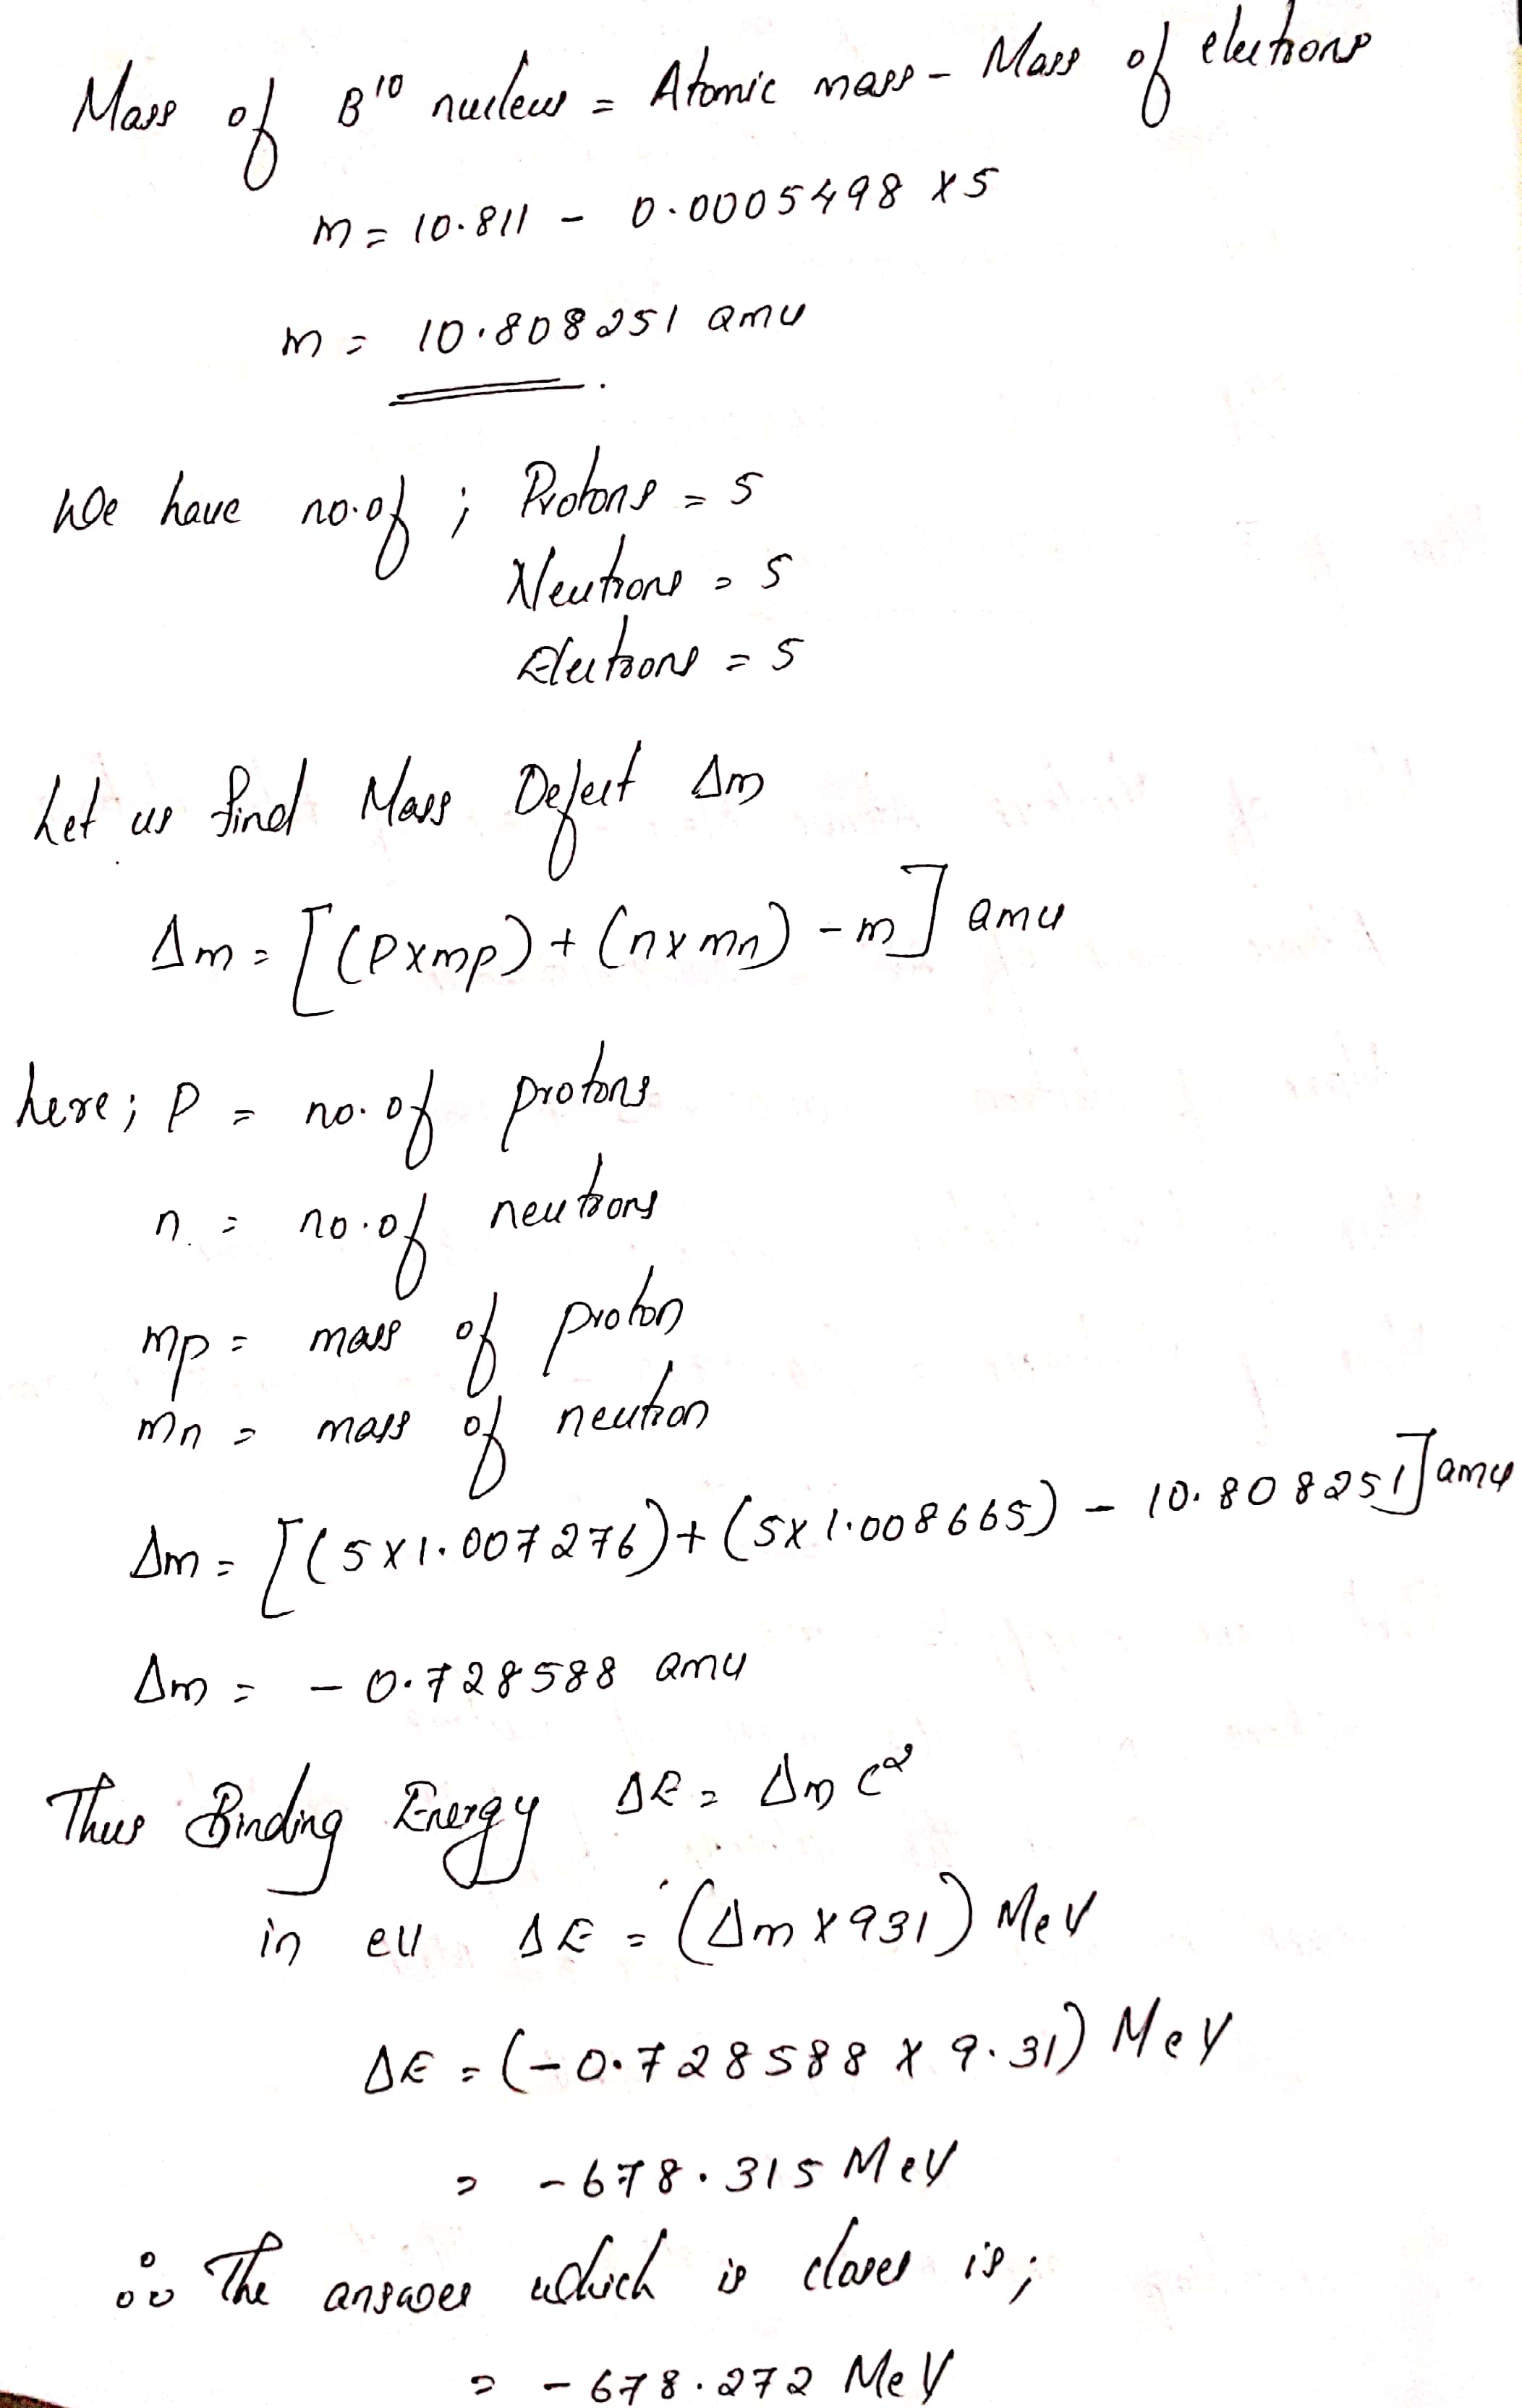 Mass of B¹⁰ nucleus = Atomic mass - Mass of electrons
m = 10.811 - 0.0005498 x 5
m = 10.808251 amu
We have no.of ; Protons = 5
Neutrons = 5
Electrons = 5
Let us find Mass Defect Δm
Δm = [(P x mp) + (n x mn) - m] amu
here; P = no. of protons
n = no.of neutrons
mp = mass of proton
mn = mass of neutron
Δm = [(5 x 1.007276) + (5 x 1.008665) - 10.808251] amu
Δm = - 0.728588 amu
Thus Binding Energy ΔE = Δm c²
in eV ΔE = (Δm x 931) MeV
ΔE = (-0.728588 x 9.31) MeV
= -678.315 MeV
∴ The answer which is closer is;
= -678.272 MeV